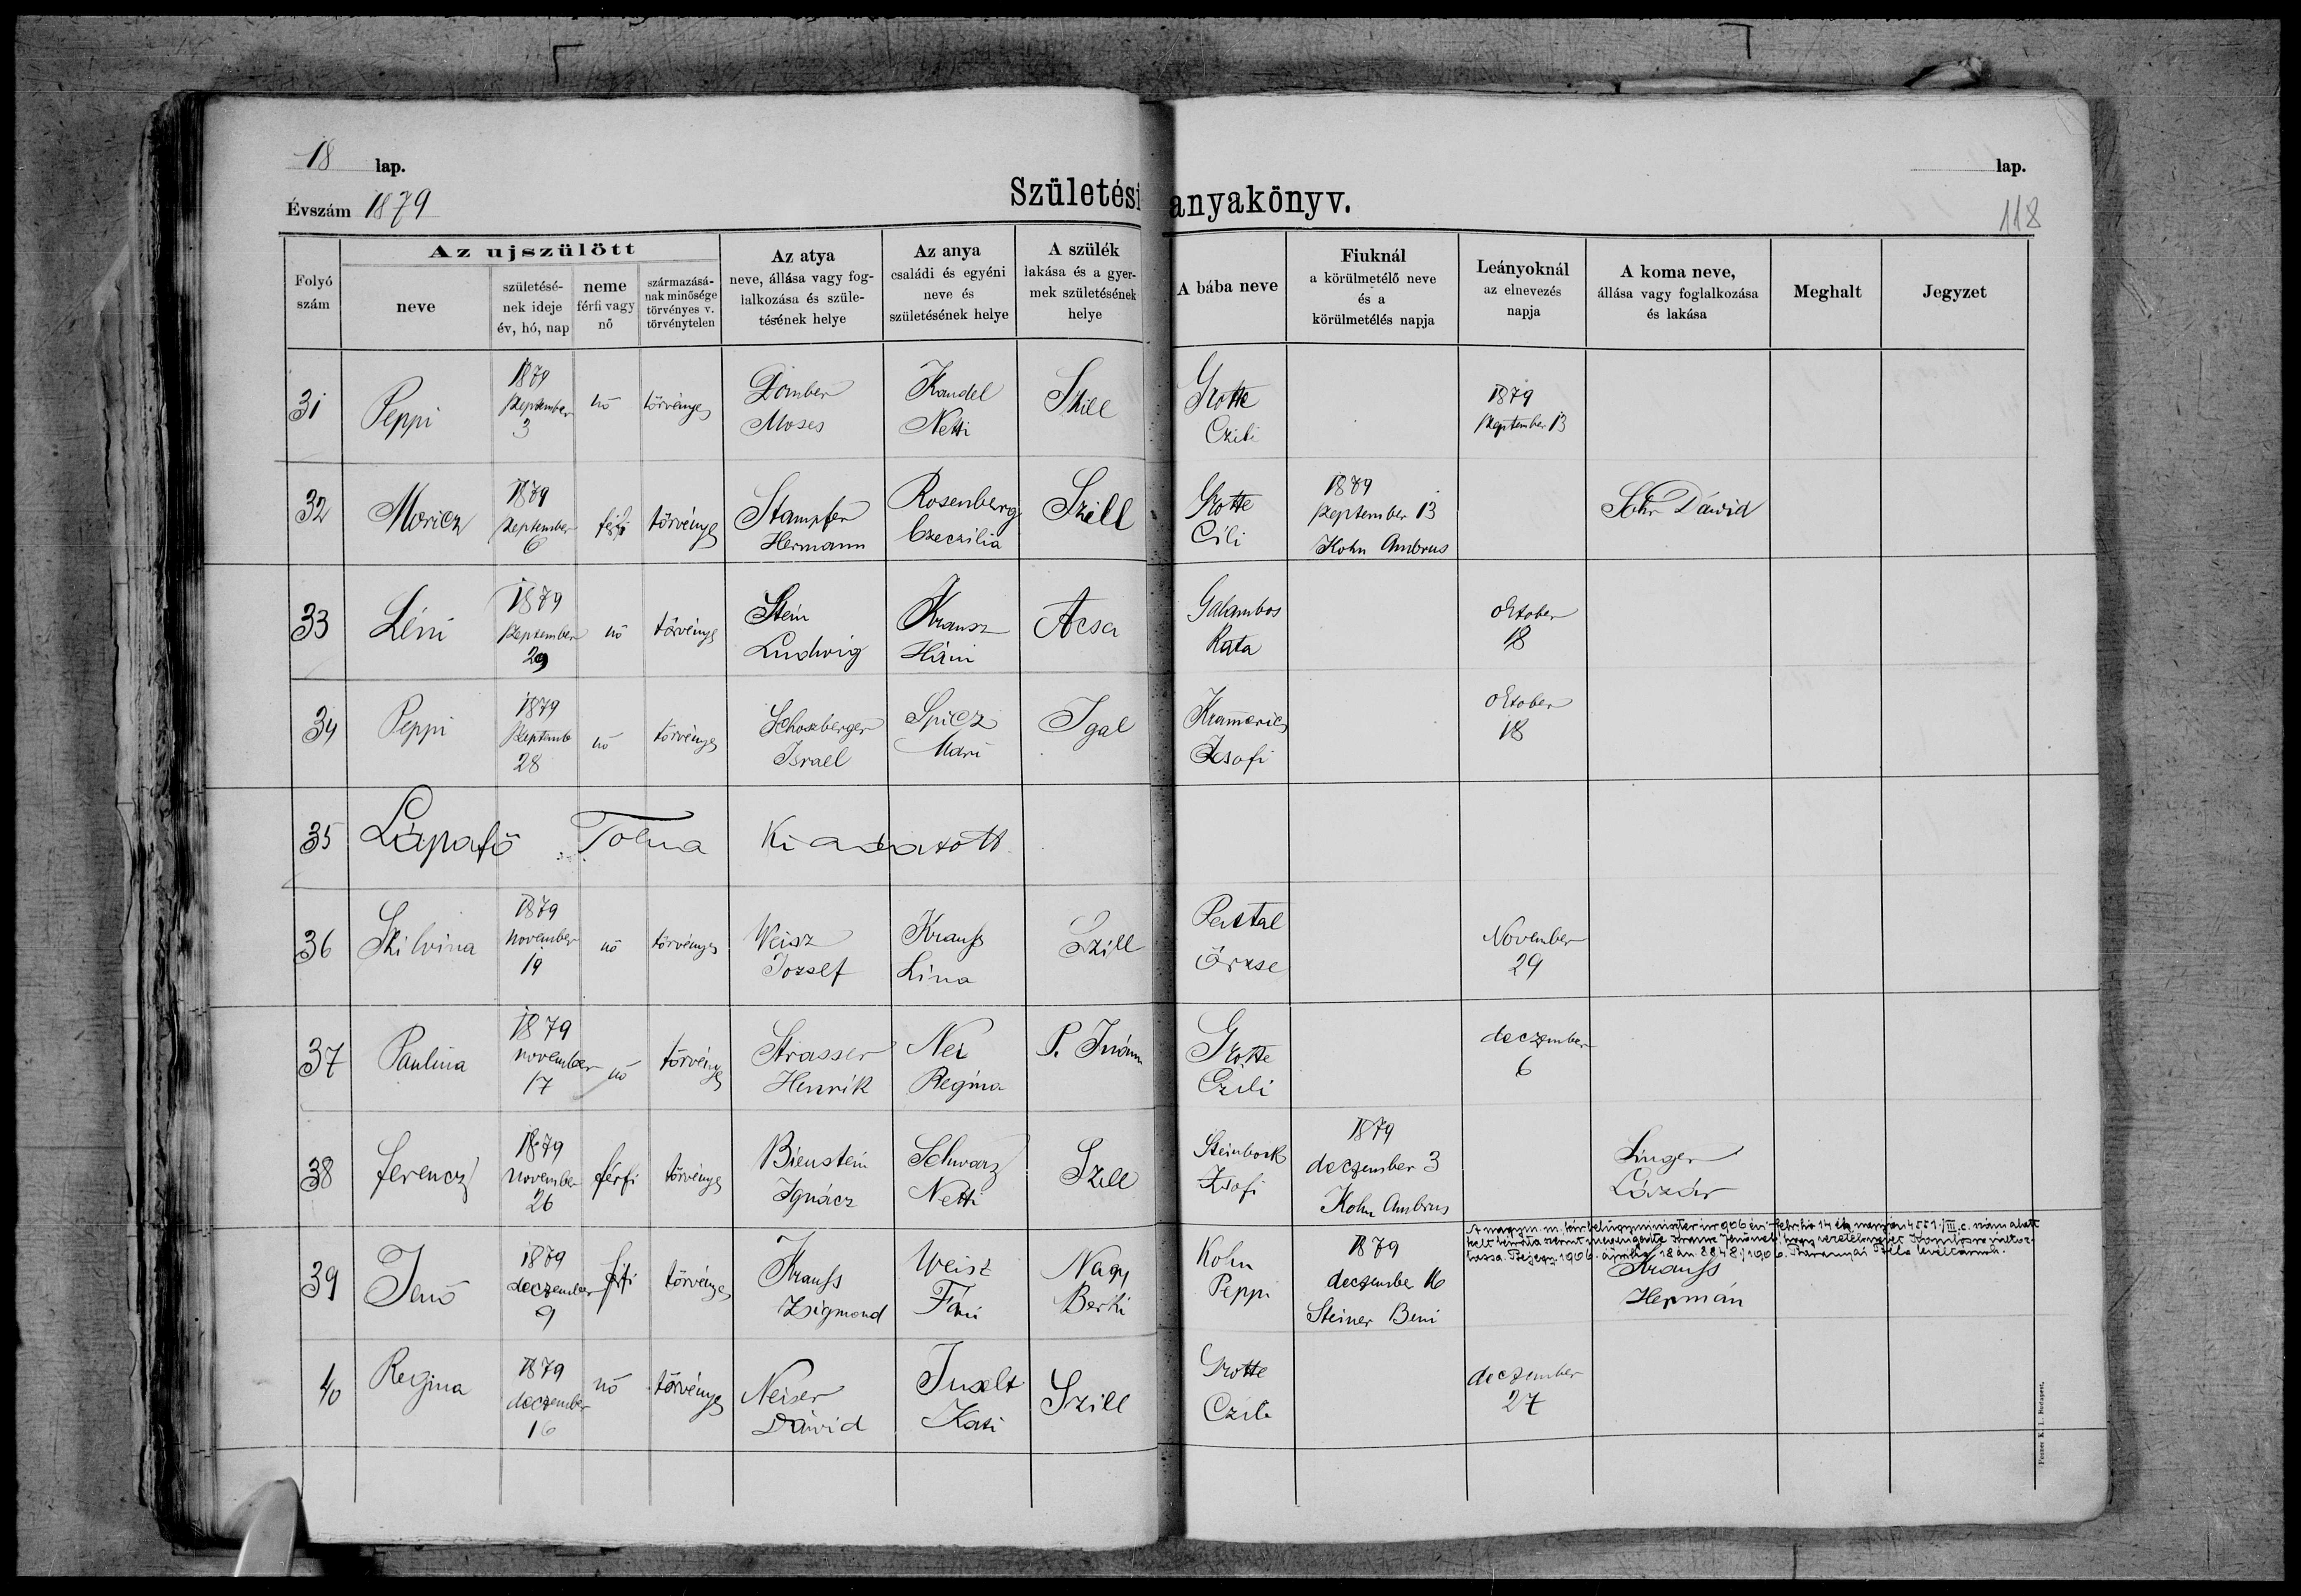 18 lap.
lap.
Évszám 1879
Születési anyakönyv.
118
Folyó szám
Az ujszülött
neve
születésé-
nek ideje
év, hó, nap
neme
férfi vagy
nő
származásá-
nak minősége
törvényes v.
törvénytelen
Az atya
neve, állása vagy fog-
lalkozása és szüle-
tésének helye
Az anya
családi és egyéni
neve és
születésének helye
A szülék
lakása és a gyer-
mek születésének
helye
A bába neve
Fiuknál
a körülmetélő neve
és a
körülmetélés napja
Leányoknál
az elnevezés
napja
A koma neve,
állása vagy foglalkozása
és lakása
Meghalt
Jegyzet
31
Peppi
1879
szeptember
3
nő
törvényes
Domber
Moses
Kandel
Netti
Szill
Grotte
Czili
1879
szeptember 13
32
Moricz
1879
szeptember
6
férfi
törvényes
Stampfer
Hermann
Rosenberg
Czeczilia
Szill
Grotte
Cili
1879
szeptember 13
Kohn Ambrus
Dávid
33
Léni
1879
szeptember
29
nő
törvényes
Stein
Ludwig
Krausz
Háni
Acsa
Galambos
Kata
oktober
18
34
Peppi
1879
szeptemb
28
nő
törvényes
Schoszberger
Israel
Spicz
Mari
Igal
Zsofi
oktober
18
35
Lápafő Tolna Kiadatott
36
Szilvina
1879
november
19
nő
törvényes
Weisz
Jozsef
Krausz
Lina
Szill
Örzse
November
29
37
Paulina
1879
november
17
nő
törvényes
Strasser
Henrik
Regina
Grotte
Czili
deczember
6
38
Ferencz
1879
november
26
férfi
törvényes
Bienstein
Ignácz
Schwarz
Netti
Szill
Steinbock
Zsofi
1879
deczember 3
Kohn Ambrus
Singer
Lázár
39
Jenő
1879
deczember
9
férfi
törvényes
Krausz
Zsigmond
Weisz
Fáni
Nagy
Berki
Kohn
Peppi
1879
deczember 16
Steiner Beni
A magyar m. kir belügyminiszter ur 906 évi febr hó 14 én
1906. április 18 án 8848/1906.
Krausz
Hermán
40
Regina
1879
deczember
16
nő
törvényes
Neiser
Dávid
Kati
Szill
Grotte
Czili
deczember
27
Posner K. L. Budapest.